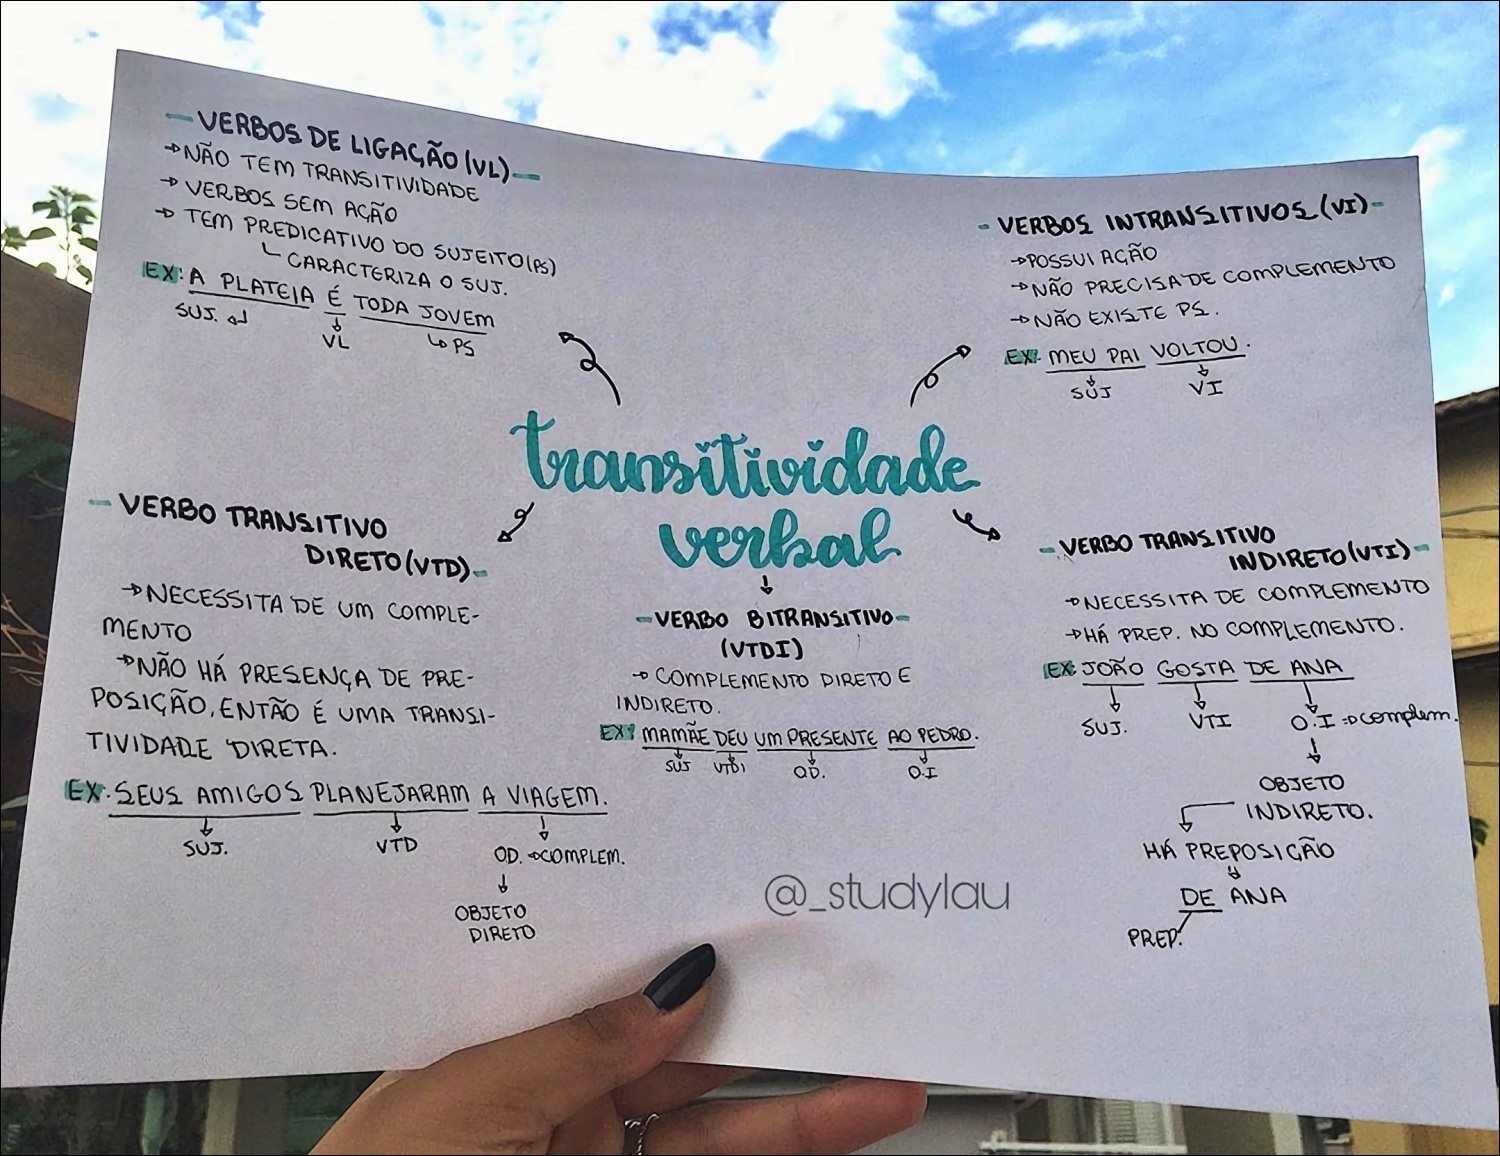 - VERBOS DE LIGAÇÃO (VL) -
→ NÃO TEM TRANSITIVIDADE
→ VERBOS SEM AÇÃO
→ TEM PREDICATIVO DO SUJEITO (PS)
CARACTERIZA O SUJ.
EX: A PLATEIA É TODA JOVEM
SUJ. VL PS
- VERBOS INTRANSITIVOS (VI) -
→ POSSUI AÇÃO
→ NÃO PRECISA DE COMPLEMENTO
→ NÃO EXISTE PS.
EX: MEU PAI VOLTOU.
SUJ VI
transitividade
verbal
- VERBO TRANSITIVO
DIRETO (VTD) -
→ NECESSITA DE UM COMPLE-
MENTO
→ NÃO HÁ PRESENÇA DE PRE-
POSIÇÃO, ENTÃO É UMA TRANSI-
TIVIDADE DIRETA.
EX: SEUS AMIGOS PLANEJARAM A VIAGEM.
SUJ. VTD OD. ⇒ COMPLEM.
OBJETO
DIRETO
- VERBO BITRANSITIVO -
(VTDI)
→ COMPLEMENTO DIRETO E
INDIRETO.
EX: MAMÃE DEU UM PRESENTE AO PEDRO.
SUJ VTDI OD. O.I
- VERBO TRANSITIVO
INDIRETO (VTI) -
→ NECESSITA DE COMPLEMENTO
→ HÁ PREP. NO COMPLEMENTO.
EX: JOÃO GOSTA DE ANA
SUJ. VTI O.I ⇒ complem.
OBJETO
INDIRETO.
HÁ PREPOSIÇÃO
DE ANA
PREP.
@_studylau